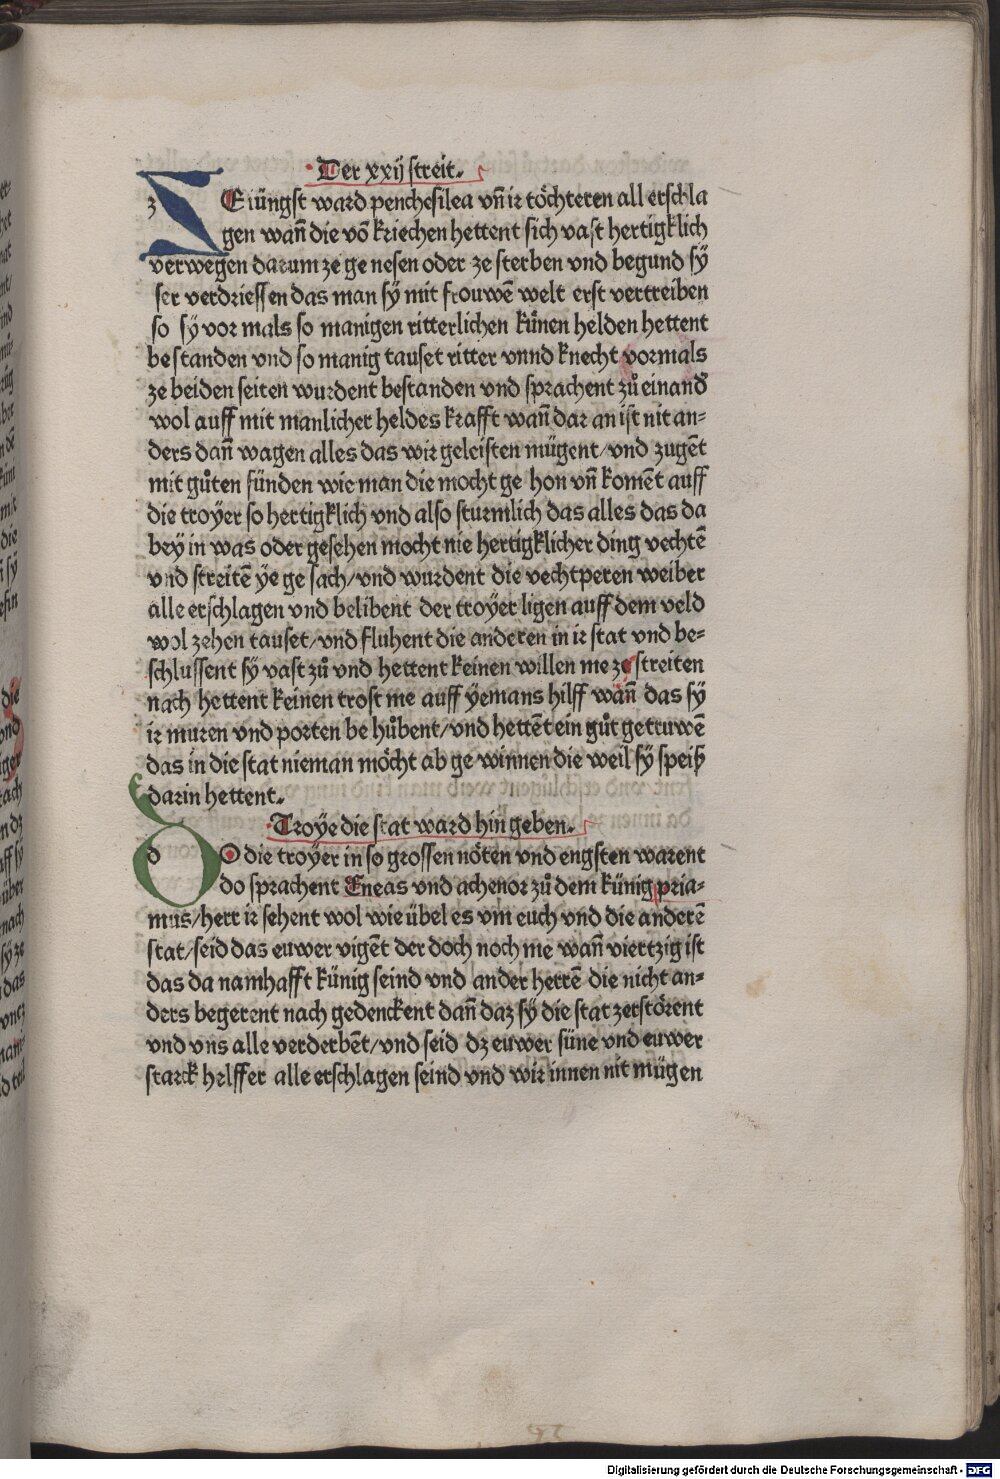 Der xxij streit.
ZEiüngst ward penchesilea vn̄ ir töchteren all erschla
gen wan̄ die vō kriechen hettent sich vast hertigklich
verwegen darum ze ge nesen oder ze sterben vnd begund sÿ
ser verdriessen das man sÿ mit frouwē welt erst vertreiben
so sÿ vor mals so manigen ritterlichen künen helden hettent
bestanden vnd so manig tauset ritter vnnd knecht vormals
ze beiden seiten wurdent bestanden vnd sprachent zů einand᷑
wol auff mit manlicher heldes krafft wan̄ dar an ist nit an-
ders dan̄ wagen alles das wir geleisten mügent/vnd zugēt
mit gůten fünden wie man die mocht ge hon vn̄ komēt auff
die troÿer so hertigklich vnd also sturmlich das alles das da
beÿ in was oder gesehen mocht nie hertigklicher ding vechtē
vnd streitē ÿe ge sach/vnd wurdent die vechtperen weiber
alle erschlagen vnd belibent der troÿer ligen auff dem veld
wol zehen tauset/vnd fluhent die anderen in ir stat vnd be-
schlussent sÿ vast zů vnd hettent keinen willen me ze streiten
nach hettent keinen trost me auff ÿemans hilff wan̄ das sÿ
ir muren vnd porten be hůbent/vnd hettēt ein gůt getruwē
das in die stat nieman möcht ab ge winnen die weil sÿ speiß
darin hettent.
Troÿe die stat ward hin geben.
dO die troÿer in so grossen nöten vnd engsten warent
do sprachent Eneas vnd achenor zů dem künig pria-
mus/herr ir sehent wol wie übel es vm euch vnd die anderē
stat/seid das euwer vigēt der doch noch me wan̄ viertzig ist
das da namhafft künig seind vnd ander herrē die nicht an-
ders begerent nach gedenckent dan̄ daz sÿ die stat zerstörent
vnd vns alle verderbēt/vnd seid dz euwer süne vnd euwer
starck helffer alle erschlagen seind vnd wir innen nit mügen
Digitalisierung gefördert durch die Deutsche Forschungsgemeinschaft - DFG